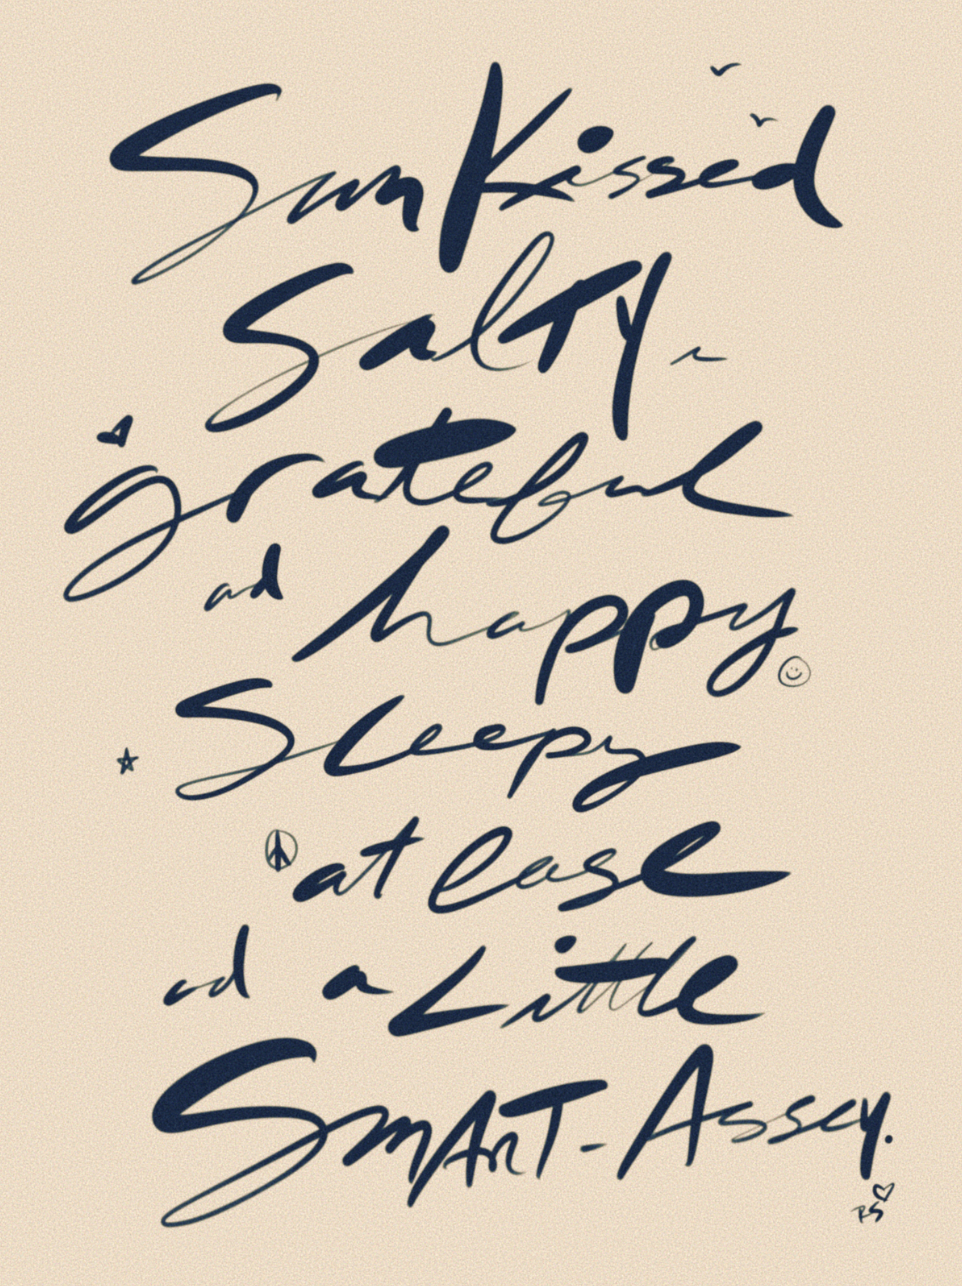 SunKissed
SalTy ~
grateful
ad happy
Sleepy
at ease
ad a Little
SmArT-Assey.
RS